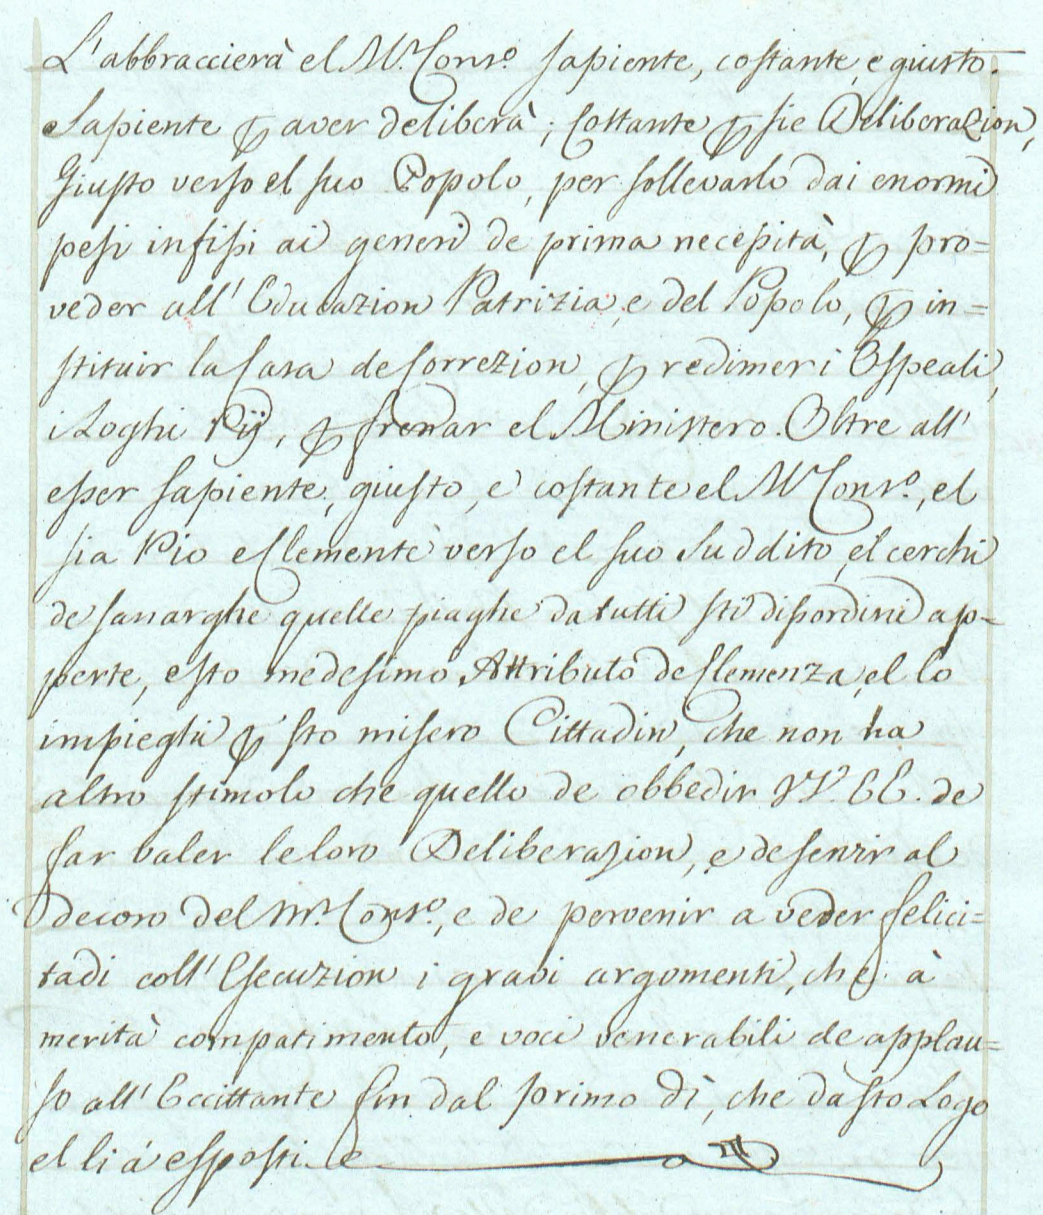 L'abbraccierà el M.r Cons.o sapiente, costante, e giusto.
Sapiente p aver deliberà; Costante p sie Deliberazion,
Giusto verso el suo Popolo, per sollevarlo dai enormi
pesi infissi ai generi de prima necessità, p pro=
veder all' Educazion Patrizia, e del Popolo, p in=
stituir la Casa de Correzion, p redimer i Ospeali,
i Loghi Pij, p frenar el Ministero. Oltre all'
esser sapiente, giusto, e costante el M.r Cons.o, el
sia Pio e Clemente verso el suo Suddito, el cerchi
de sanarghe quelle piaghe da tutti sti dissordini ap=
perte, e sto medesimo Attributo de Clemenza, el lo
impieghi p sto misero Cittadin, che non ha
altro stimolo che quello de obbedir VV. EE. de
far valer le loro Deliberazion, e de servir al
decoro del M.r Cons.o, e de pervenir a veder felici=
tadi coll' Esecuzion i gravi argomenti, che à
merità compatimento, e voci venerabili de applau=
so all' Eccittante fin dal primo dì, che da sto Logo
el li á esposti.